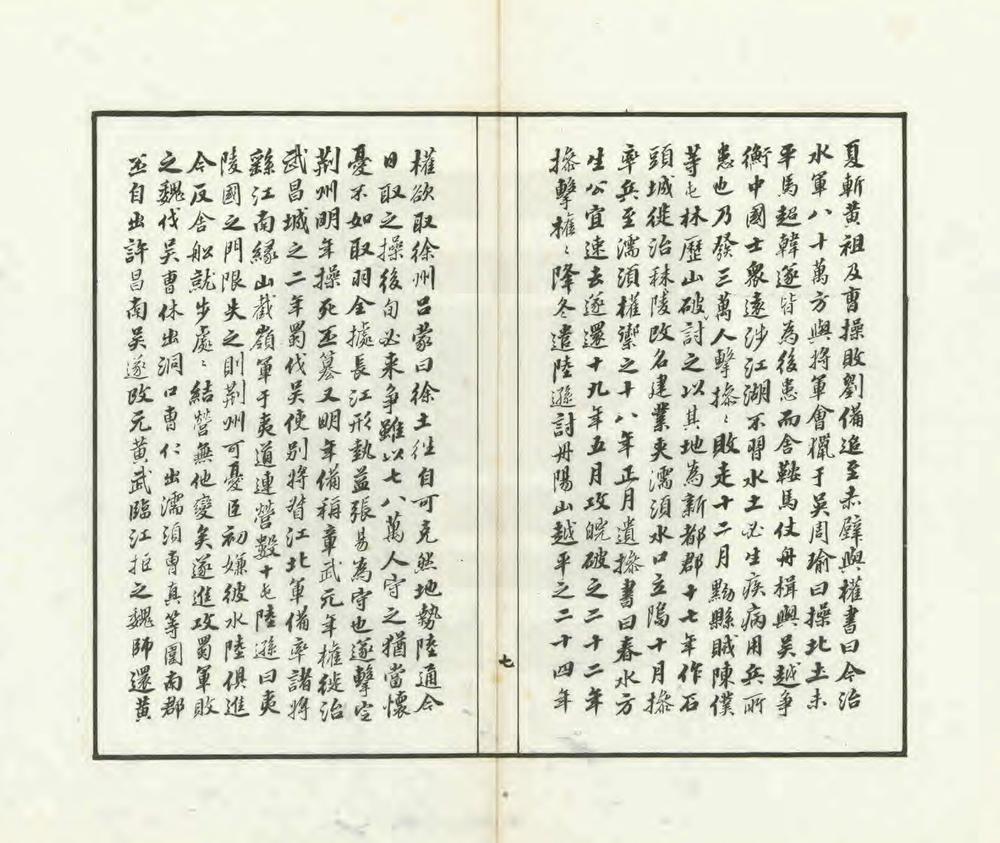 夏斬黃祖及曹操敗劉備追至赤壁與權書曰今治
水軍八十萬方與將軍會獵于吳周瑜曰操北土未
平馬超韓遂皆為後患而舍鞍馬仗舟楫與吳越爭
衡中國士眾遠涉江湖不習水土必生疾病用兵所
患也乃發三萬人擊操〻敗走十二月黝縣賊陳僕
等屯林歷山破討之以其地為新都郡十七年作石
頭城徙治秣陵改名建業夾濡須水口立塢十月操
率兵至濡須權禦之十八年正月遺操書曰春水方
生公宜速去遂還十九年五月攻皖破之二十二年
操擊權〻降冬遣陸遜討丹陽山越平之二十四年
七
權欲取徐州呂蒙曰徐土往自可克然地勢陸通今
日取之操後旬必来爭雖以七八萬人守之猶當懷
憂不如取羽全據長江形執益張易為守也遂擊定
荊州明年操死丕篡又明年備稱章武元年權徙治
武昌城之二年蜀伐吳使别將督江北軍備率諸將
繇江南緣山截嶺軍于夷道連營數十屯陸遜曰夷
陵國之門限失之則荊州可憂臣初嫌彼水陸俱進
今反舍船就步處〻結營無他變矣遂進攻蜀軍敗
之魏伐吳曹休出洞口曹仁出濡須曹真等圍南郡
丕自出許昌南吳遂改元黃武臨江拒之魏師還黃